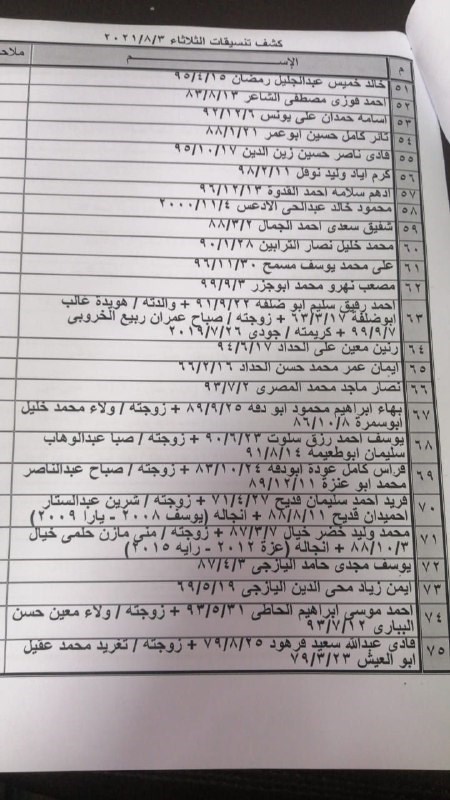 كشف تنسيقات الثلاثاء ٢٠٢١/٨/٣
م الإســـــــم ملاحـ
٥١ خالد خميس عبدالجليل رمضان ٩٥/٤/١٥
٥٢ احمد فوزى مصطفى الشاعر ٨٣/٨/١٣
٥٣ اسامه حمدان على يونس ٩٢/١٢/٦
٥٤ ثائر كامل حسين ابوعمر ٨٨/١/٢١
٥٥ فادى ناصر حسين زين الدين ٩٥/١٠/١٧
٥٦ كرم اياد وليد نوفل ٩٨/٢/١١
٥٧ ادهم سلامه احمد القدوة ٩٦/١٢/١٣
٥٨ محمود خالد عبدالحى الادعس ٢٠٠٠/١١/٤
٥٩ شفيق سعدى احمد الجمال ٨٨/٣/٢
٦٠ محمد خليل نصار الترابين ٩٠/١/٢٨
٦١ على محمد يوسف مسمح ٩٦/١١/٣٠
٦٢ مصعب نهرو محمد ابوجزر ٩٩/٩/٣
٦٣ احمد رفيق سليم ابو ضلفه ٩١/٩/٢٢ + والدته / هويدة غالب
ابوضلفة ٦٣/٣/١٧ + زوجته / صباح عمران ربيع الخروبى
٩٩/٩/٧ + كريمته / جودى ٢٠١٩/٧/٢٦
٦٤ رنين معين على الحداد ٩٤/٦/١٧
٦٥ ايمان عمر محمد حسن الحداد ٦٦/٢/١٦
٦٦ نصار ماجد محمد المصرى ٩٣/٧/٢
٦٧ بهاء ابراهيم محمود ابو دقه ٨٩/٩/٢٥ + زوجته / ولاء محمد خليل
ابوسمرة ٨٦/١٠/٨
٦٨ يوسف احمد رزق سلوت ٩٠/٦/٢٣ + زوجته / صبا عبدالوهاب
سليمان ابوطعيمه ٩١/٨/١٤
٦٩ فراس كامل عودة ابودقه ٨٣/١٠/٢٤ + زوجته / صباح عبدالناصر
محمد ابو عنزة ٨٩/١٢/١١
٧٠ فريد احمد سليمان قديح ٧١/٤/٢٧ + زوجته / شرين عبدالستار
احميدان قديح ٨٨/٨/١١ + انجاله (يوسف ٢٠٠٨ - يارا ٢٠٠٩)
٧١ محمد وليد خضر خيال ٨٧/٣/٧ + زوجته / منى مازن حلمى خيال
٨٨/١٠/٣ + انجاله (عزة ٢٠١٢ - رايه ٢٠١٥)
٧٢ يوسف مجدى حامد اليازجى ٨٧/٤/٣
٧٣ ايمن زياد محى الدين اليازجى ٦٩/٥/١٩
٧٤ احمد موسى ابراهيم الحاطى ٩٣/٥/٣١ + زوجته / ولاء معين حسن
البيارى ٩٣/٧/١٢
٧٥ فادى عبدالله سعيد فرهود ٧٩/٨/٢٥ + زوجته / تغريد محمد عقيل
ابو العيش ٧٩/٣/٢٣